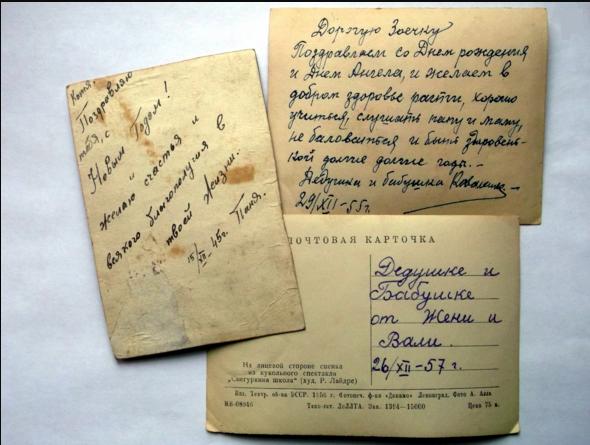 Катя!
Поздравляю
тебя, с
Новым Годом!
и
желаю счастья и
всякого благополучия в
твоей жизни.
15/XII 45г. Папя.
Дорогую Зоечку
Поздравляем со Днем рождения
и Днем Ангела, и желаем в
добром здоровье расти, хорошо
учиться, слушать папу и маму,
не баловаться и быть здоровень-
кой долгие долгие годы.-
Дедушка и бабушка
29/XII-55г.
ПОЧТОВАЯ КАРТОЧКА
Дедушке и
Бабушке
от Жени и
Вали.
26/XII-57 г.
На лицевой стороне сценка
из кукольного спектакля
„Снегуркина школа“ (худ. Р. Лайдре)
Изд. Театр. об-ва ЭССР. 1956 г. Фотопеч. ф-ка «Динамо» Ленинград. Фото А. Алла
МВ-08946 Типо-лит. ЛОЛЛТА. Зак. 1394-15000 Цена 75 к.